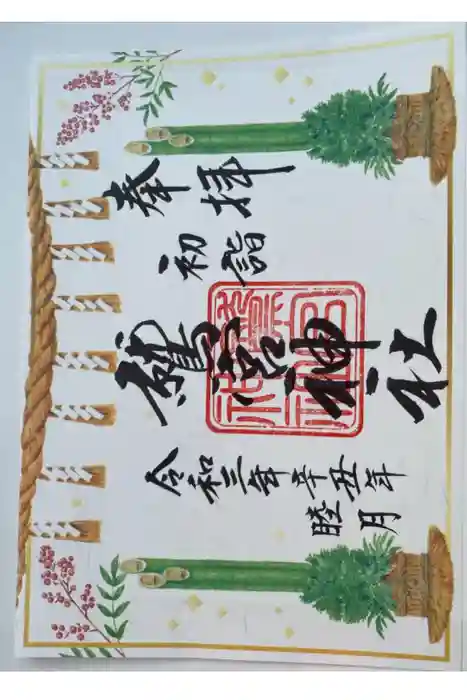 奉拝
初詣
宮神社
令和三年辛丑年
睦月